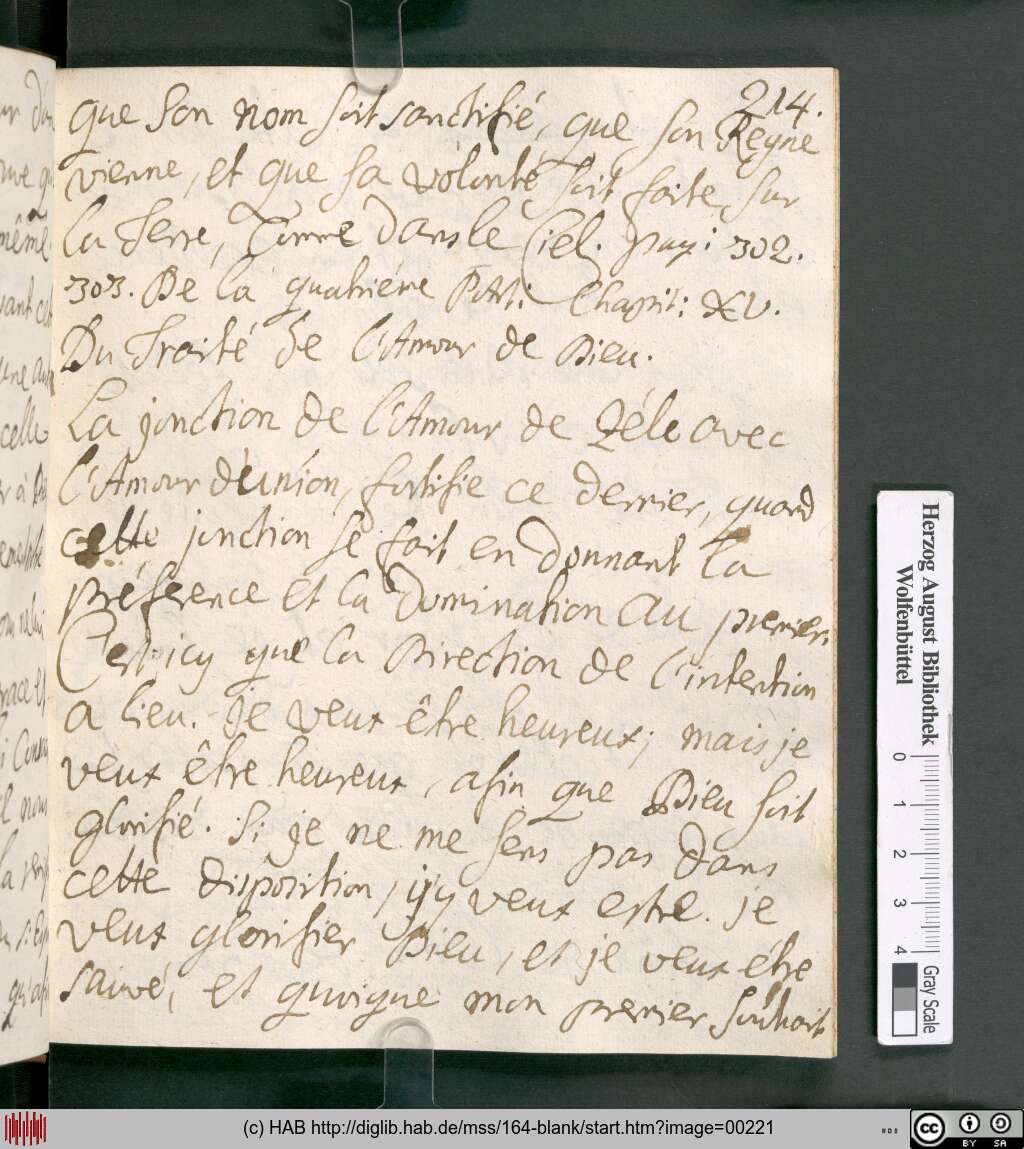 214.
que son nom soit sanctifié, que son Regne
vienne, et que sa volonté soit faite, sur
la Terre, Comme dans le Ciel. pag: 302.
303. De la quatriéme Part: Chapit: XV.
Du Traité de l'Amour de Dieu.
La jonction de l'Amour de Zéle avec
l'Amour d'eunion, fortifie ce dernier, quand
cette jonction se fait en donnant la
préference et la Domination au premier.
C'est icy que la Direction de l'intention
a lieu. Je veux être heureux; mais je
veux être heureux, afin que Dieu soit
glorifié. Si je ne me sens pas dans
cette disposition, j'y veux estre. je
veux glorifier Dieu, et je veux être
sauvé, et quoique mon premier souhait
Herzog August Bibliothek
Wolfenbüttel
0 1 2 3 4
Gray Scale
(c) HAB http://diglib.hab.de/mss/164-blank/start.htm?image=00221
cc BY SA